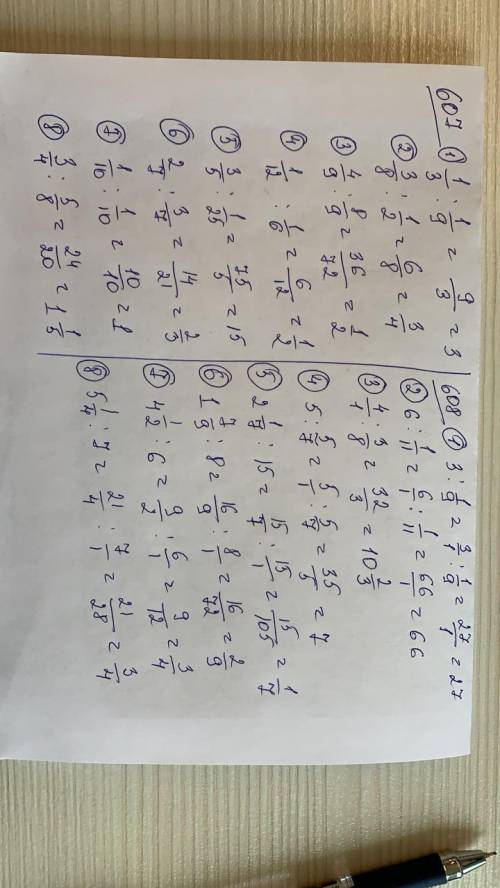 607 ① 1/3 : 1/9 = 9/3 = 3
② 3/8 : 1/2 = 6/8 = 3/4
③ 4/9 : 8/9 = 36/72 = 1/2
④ 1/12 : 1/6 = 6/12 = 1/2
⑤ 3/5 : 1/25 = 75/5 = 15
⑥ 2/7 : 3/7 = 14/21 = 2/3
⑦ 1/10 : 1/10 = 10/10 = 1
⑧ 3/4 : 5/8 = 24/20 = 1 1/5
608 ① 3 : 1/9 = 3/1 : 1/9 = 27/1 = 27
② 6 : 1/11 = 6/1 : 1/11 = 66/1 = 66
③ 4/1 : 3/8 = 32/3 = 10 2/3
④ 5 : 5/7 = 5/1 : 5/7 = 35/5 = 7
⑤ 2 1/7 : 15 = 15/7 : 15/1 = 15/105 = 1/7
⑥ 1 7/9 : 8 = 16/9 : 8/1 = 16/72 = 2/9
⑦ 4 1/2 : 6 = 9/2 : 6/1 = 9/12 = 3/4
⑧ 5 1/4 : 7 = 21/4 : 7/1 = 21/28 = 3/4